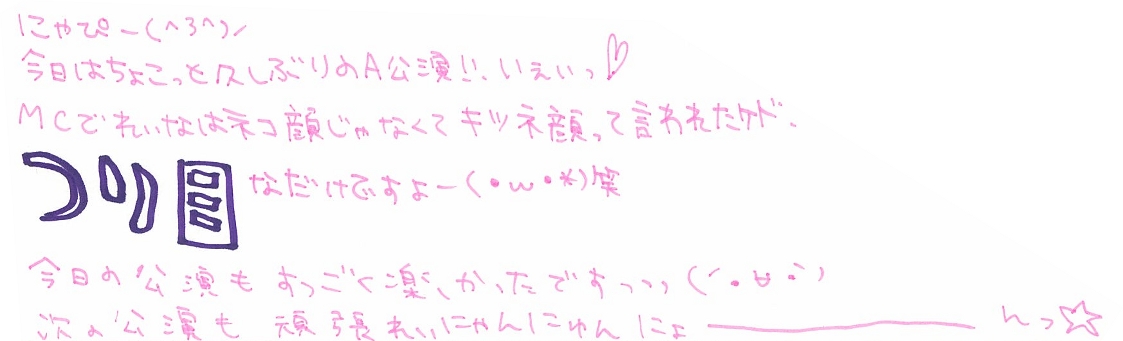 にゃぴー(^3^)ノ
今日はちょこっと久しぶりのA公演!!、いえいっ♡
MCでれいなはネコ顔じゃなくてキツネ顔って言われたケド、
つり目なだけですよー(・ω・*)笑
今日の公演もすっごく楽しかったですっっっ(´・∀・`)
次の公演も頑張れいにゃんにゅんにょ————んっ☆